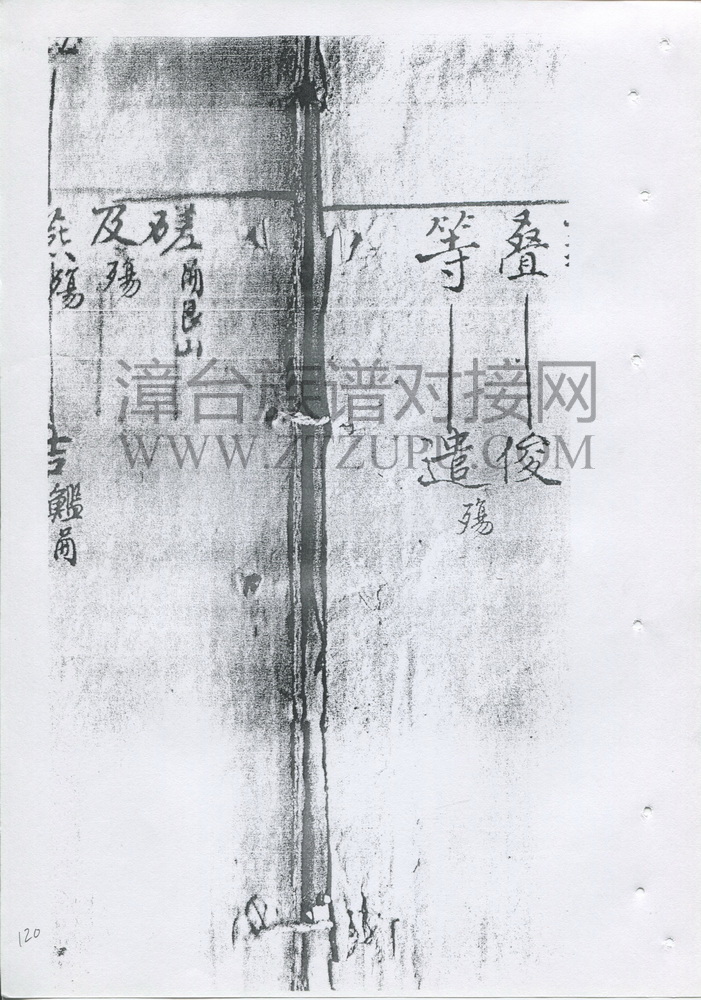 叠
俊
等
遣
殤
磋
艮山
及
殤
殤
漳台族谱对接网
WWW.ZTZUPU.COM
120